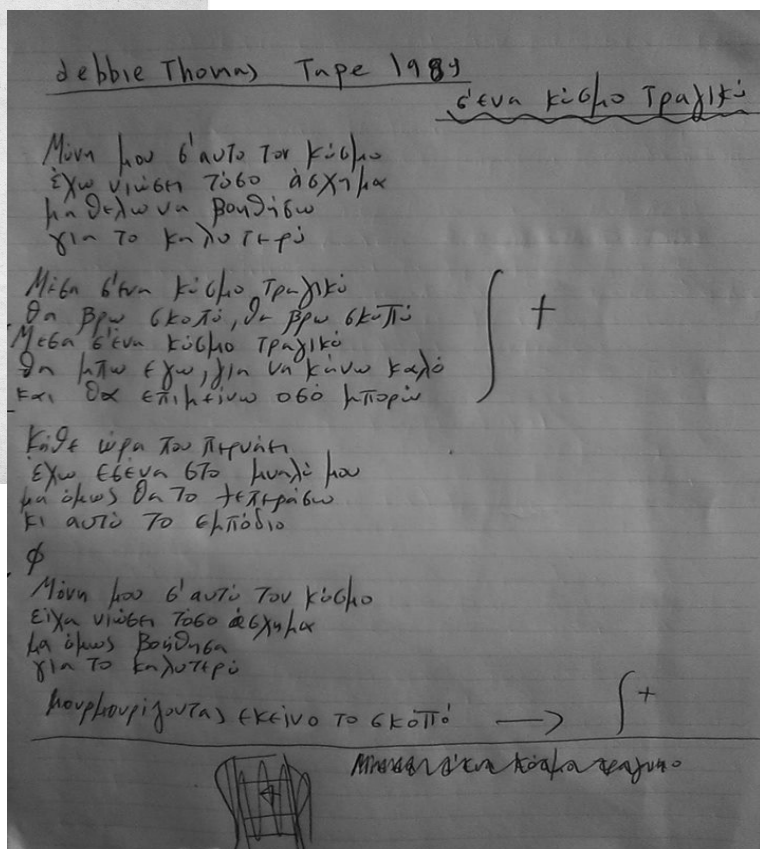 debbie Thomas Tape 1989
σ'ένα κόσμο τραγικό
Μόνη μου σ'αυτό τον κόσμο
έχω νιώσει τόσο άσχημα
μα θέλω να βοηθήσω
για το καλυτερό
Μέσα σ'ένα κόσμο τραγικό
θα βρω σκοπό, θα βρω σκοπό
Μεσα σ'ένα κόσμο τραγικό
θα μπω εγω, για να κάνω καλό
και θα επιμείνω οσό μπορώ
+
Κάθε ώρα που περνάει
έχω εσένα στο μυαλό μου
μα όμως θα το ξεπεράσω
κι αυτό το εμπόδιο
φ
Μόνη μου σ'αυτό τον κόσμο
είχα νιώσει τόσο άσχημα
μα όμως βοήθησα
για το καλυτερό
μουρμουρίζοντας εκείνο το σκοπό → +